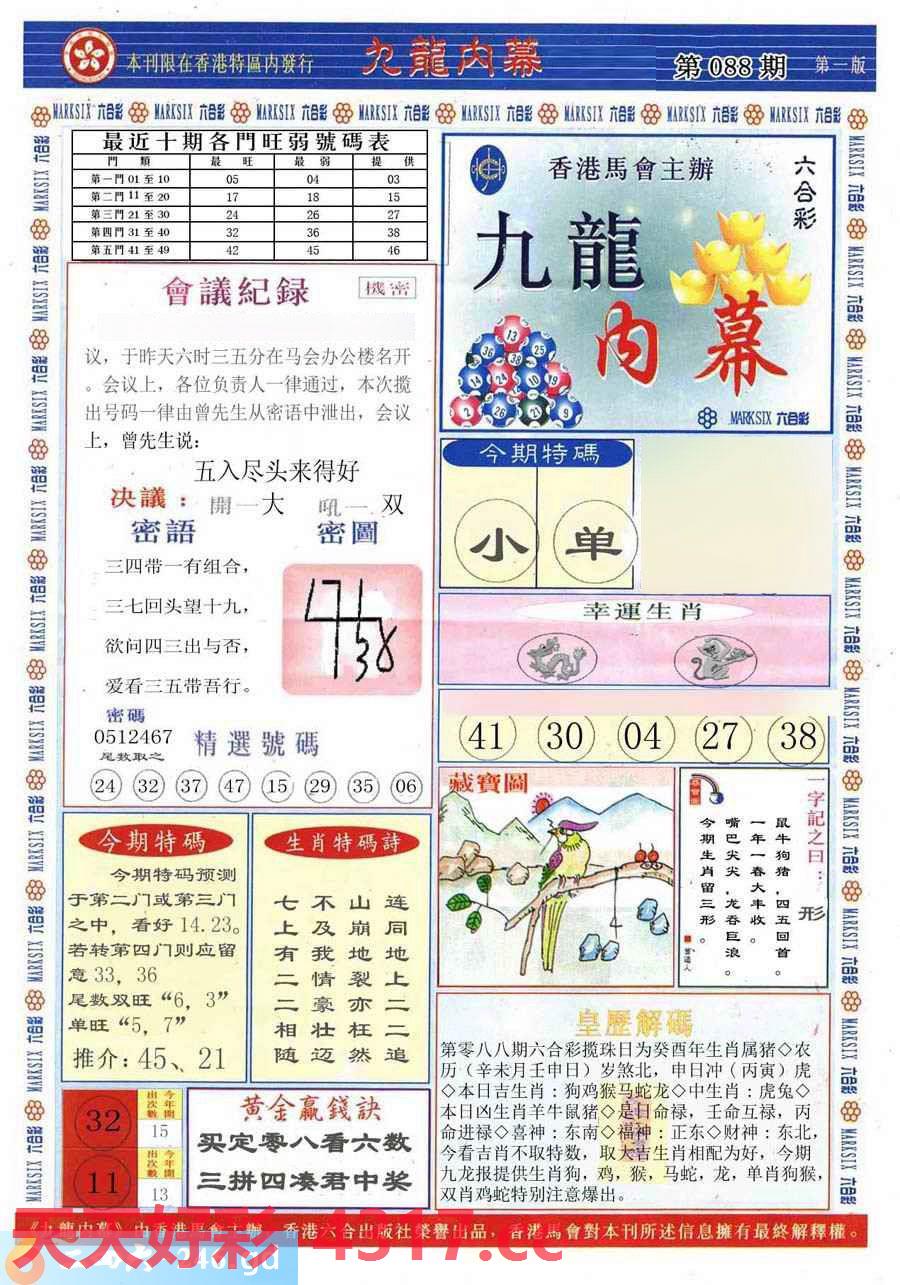 本刊限在香港特區内發行
九龍内幕
第 088 期
第一版
MARKSIX 六合彩
最近十期各門旺弱號碼表
門 類 最 旺 最 弱 提 供
第一門 01 至 10 05 04 03
第二門 11 至 20 17 18 15
第三門 21 至 30 24 26 27
第四門 31 至 40 32 36 38
第五門 41 至 49 42 45 46
會議紀録
機密
议，于昨天六时三五分在马会办公楼名开
。会议上，各位负责人一律通过，本次搅
出号码一律由曾先生从密语中泄出，会议
上，曾先生说：
五入尽头来得好
决議： 開一大 吼一 双
密語 密圖
三四带一有组合，
三七回头望十九，
欲问四三出与否，
爱看三五带吾行。
密碼
0512467
尾数取之
精選號碼
24 32 37 47 15 29 35 06
香港馬會主辦
六合彩
九龍
内幕
MARKSIX 六合彩
今期特碼
小 单
幸運生肖
41 30 04 27 38
藏寶圖
一字記之曰：形
鼠牛狗猪，四五回首。
一年一春大丰收。
嘴巴尖尖，龙吞巨浪。
今期生肖留三形。
今期特碼
今期特码预测
于第二门或第三门
之中，看好 14.23。
若转第四门则应留
意 33，36
尾数双旺“6，3”
单旺“5，7”
推介：45、21
生肖特碼詩
连同地上二二追
山崩地裂亦枉然
不及我情豪壮迈
七上有二二相随
皇歷解碼
第零八八期六合彩揽珠日为癸酉年生肖属猪◇农
历（辛未月壬申日）岁煞北，申日冲（丙寅）虎
◇本日吉生肖：狗鸡猴马蛇龙◇中生肖：虎兔◇
本日凶生肖羊牛鼠猪◇是日命禄，壬命互禄，丙
命进禄◇喜神：东南◇福神：正东◇财神：东北，
今看吉肖不取特数，取大吉生肖相配为好，今期
九龙报提供生肖狗，鸡，猴，马蛇，龙，单肖狗猴，
双肖鸡蛇特别注意爆出。
32 今年開出次數 15
11 今年開出次數 13
黄金赢錢訣
买定零八看六数
三拼四凑君中奖
《九龍内幕》由香港馬會主辦，香港六合出版社榮譽出品，香港馬會對本刊所述信息擁有最終解釋權。
天天好彩 4317.cc